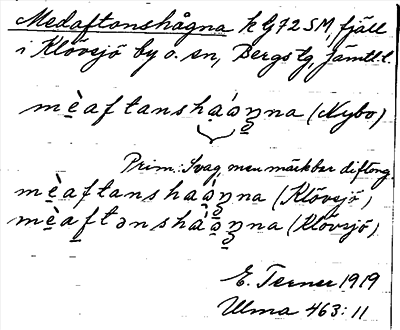 Medaftonshågna k G72 SM, fjäll
i Klövsjö by o. sn, Bergs tg, Jämtl. l.
mὲaftanshàåŋna (Nybo)
Prim.: Svag, men märkbar diftong
mὲaftanshaåŋna (Klövsjö)
mὲaftənshàåŋna (Klövsjö)
E. Terner 1919
Ulma 463:11